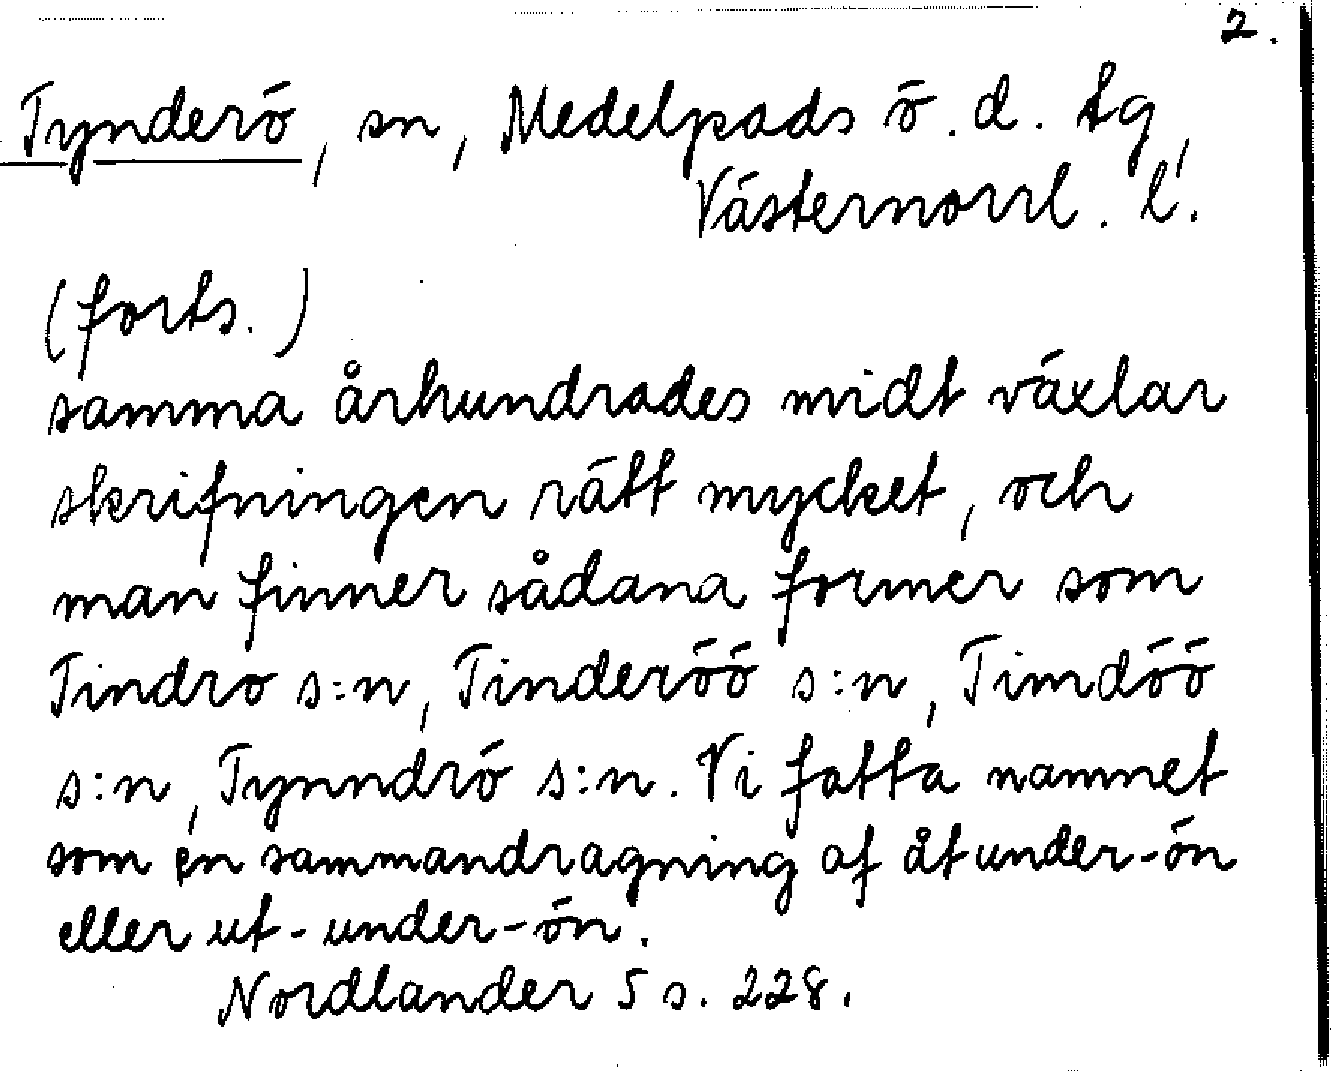 2.
Tynderö, sn, Medelpads ö. d. tg,
Västernorrl. l.
(forts.)
samma århundrades midt växlar
skrifningen rätt mycket, och
man finner sådana former som
Tindro s:n, Tinderöö s:n, Timdöö
s:n, Tynndrö s:n. Vi fatta namnet
som en sammandragning af åt under-ön
eller ut-under-ön.
Nordlander 5 s. 228.